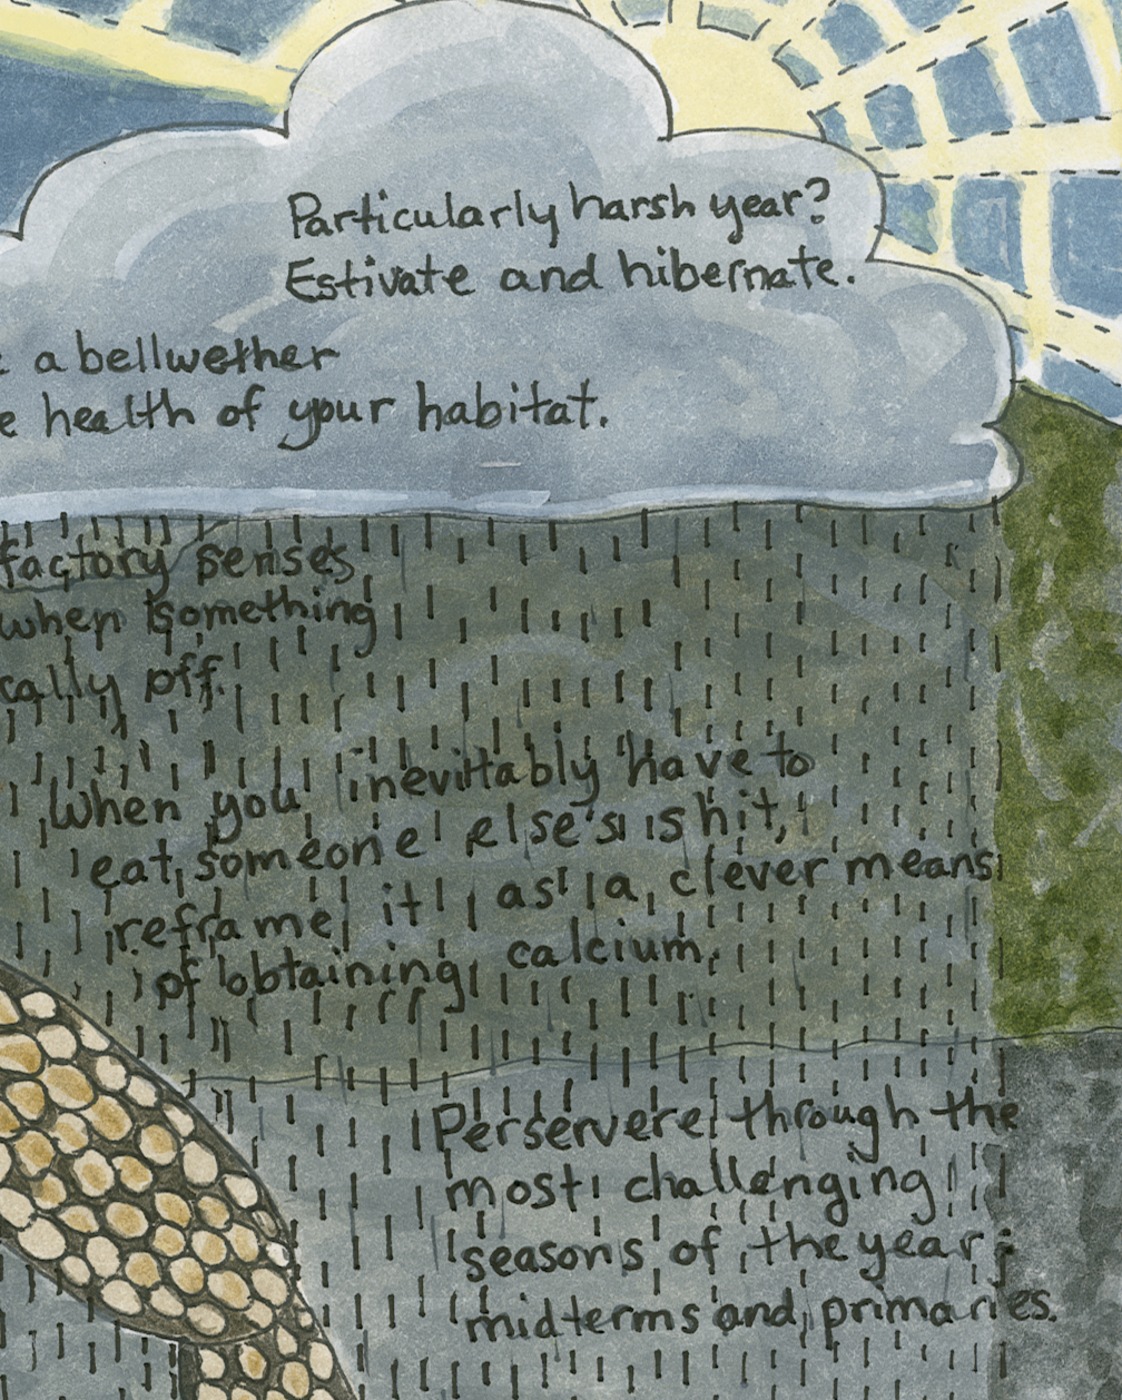 Particularly harsh year?
Estivate and hibernate.
a bellwether
health of your habitat.
factory senses
when something
cally off.
When you inevittably have to
eat someone else's shit,
reframe it as a clever means
of obtaining calcium.
Perservere through the
most challenging
seasons of the year;
midterms and primaries.